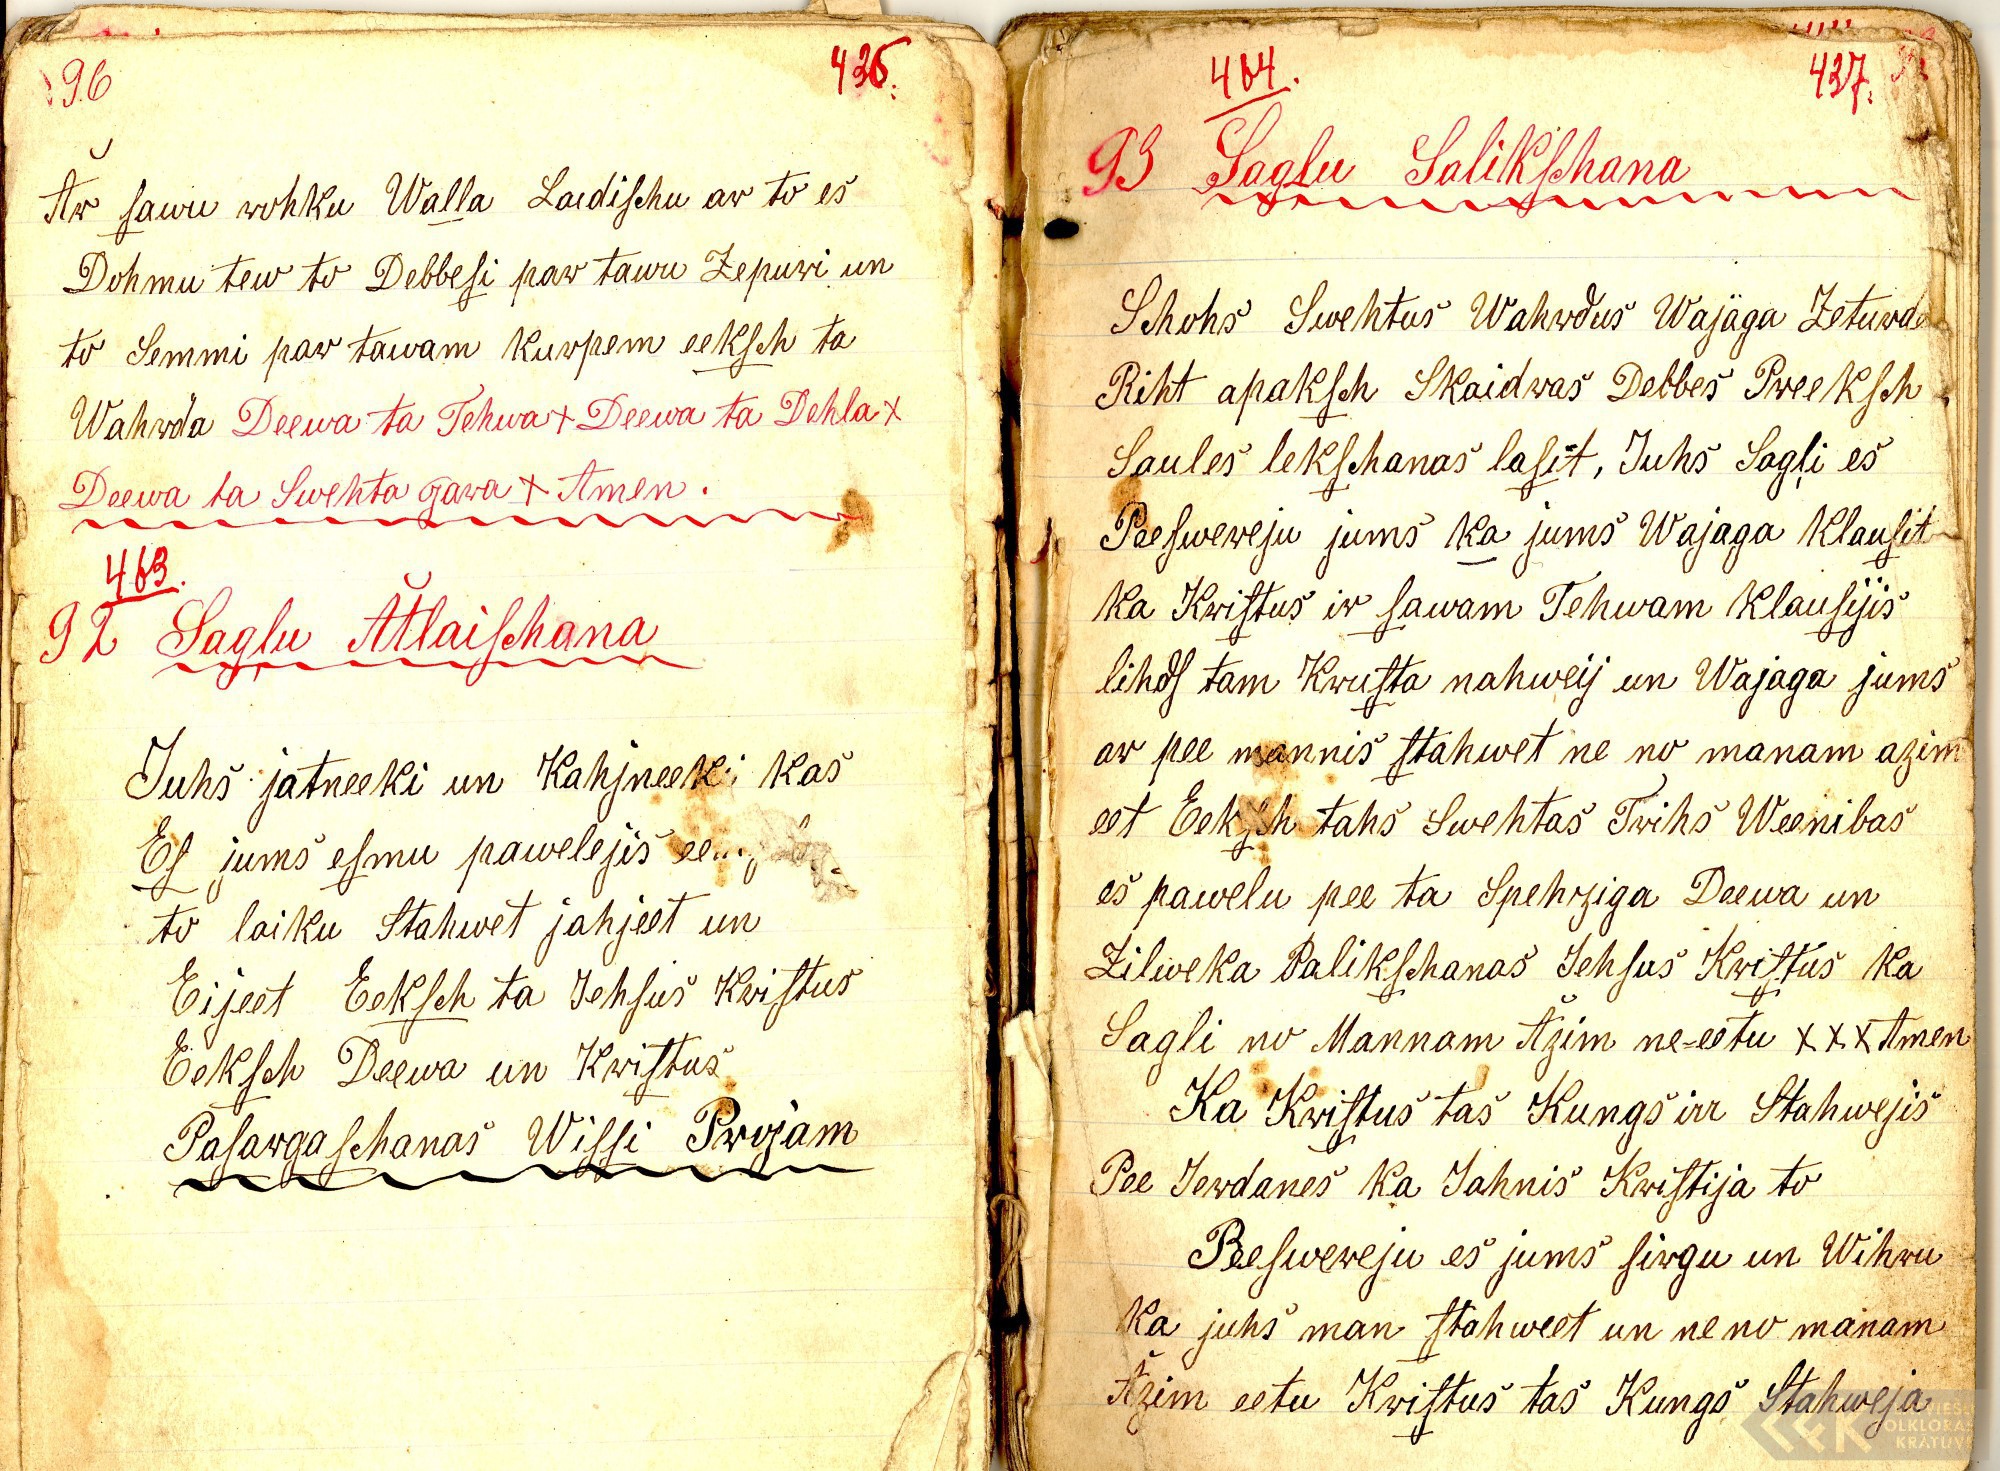 96
436.
Ar ſawu rohku Walla Laidiſchu ar to es
Dohmu tew to Debbeſi par tawu Zepuri un
to Semmi par tawam kurpem eekſch ta
Wahrda Deewa ta Tehwa + Deewa ta Dehla +
Deewa ta Swehta gara + Amen.
463.
92 Saglu Atlaiſchana
Juhs jatneeki un Kahjneeki kas
Eſ jums eſmu pawelejis
to laiku Stahwet jahjeet un
Eijeet Eekſch ta Jehſus Kriſtus
Eekſch Deewa un Kriſtus
Paſargaſchanas Wiſſi Projam
464.
437.
93 Saglu Salikſchana
Schohs Swehtus Wahrdus Wajäga Zeturda
Riht apakſch Skaidras Debbes Preekſch
Saules lekſchanas laſit, Juhs Sagli es
Peeſwereju jums ka jums Wajaga klauſit
ka Kriſtus ir ſawam Tehwam klauſijis
lihdſ tam Kruſta nahweij un Wajaga jums
ar pee mannis ſtahwet ne no manam azim
eet Eekſch tahs Swehtas Trihs Weenibas
es pawelu pee ta Spehziga Deewa un
Zilweka Palikſchanas Jehſus Kriſtus ka
Sagli no Mannam Azim ne-eetu + + + Amen
Ka Kriſtus tas Kungs irr Stahwejis
Pee Jerdanes ka Jahnis Kriſtija to
Peeſwereju es jums ſirgu un Wihru
ka juhs man ſtahweet un ne no manam
Azim eetu Kriſtus tas Kungs Stahweja